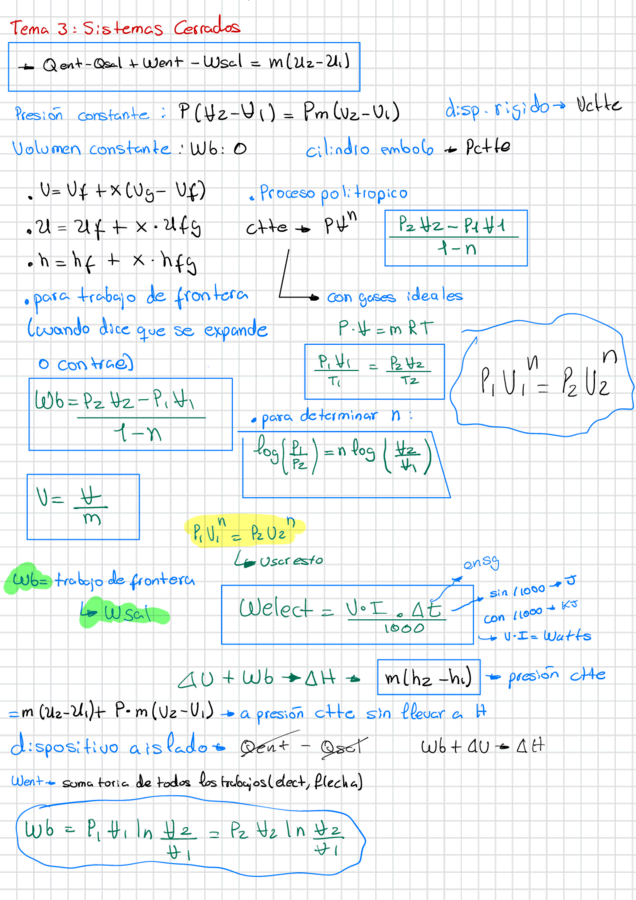 Tema 3: Sistemas Cerrados
→ Qent-Qsal + Went - Wsal = m(u2-u1)
Presión constante: P(V2-V1) = Pm(v2-v1)
disp. rigido → Vctte
Volumen constante: Wb: 0
cilindro embolo → Pctte
. v = vf + x(vg - vf)
. u = uf + x · ufg
. h = hf + x · hfg
. Proceso politropico
ctte → PV^n
P2V2 - P1V1 / 1-n
→ con gases ideales
P·V = mRT
P1V1/T1 = P2V2/T2
P1 V1^n = P2 V2^n
. para trabajo de frontera
(cuando dice que se expande
o contrae)
Wb = P2V2 - P1V1 / 1-n
. para determinar n:
log(P1/P2) = n log(V2/V1)
v = V/m
P1 V1^n = P2 V2^n
↳ Usar esto
Wb = trabajo de frontera
↳ Wsal
Welect = V·I·Δt / 1000
en sg
sin /1000 → J
con /1000 → KJ
V·I = Watts
ΔU + Wb → ΔH → m(h2-h1) → presión ctte
= m(u2-u1) + P·m(v2-v1) → a presión ctte sin llevar a H
dispositivo aislado → Qent - Qsal
Wb + ΔU → ΔH
Went → sumatoria de todos los trabajos (elect, flecha)
Wb = P1 V1 ln V2/V1 = P2 V2 ln V2/V1